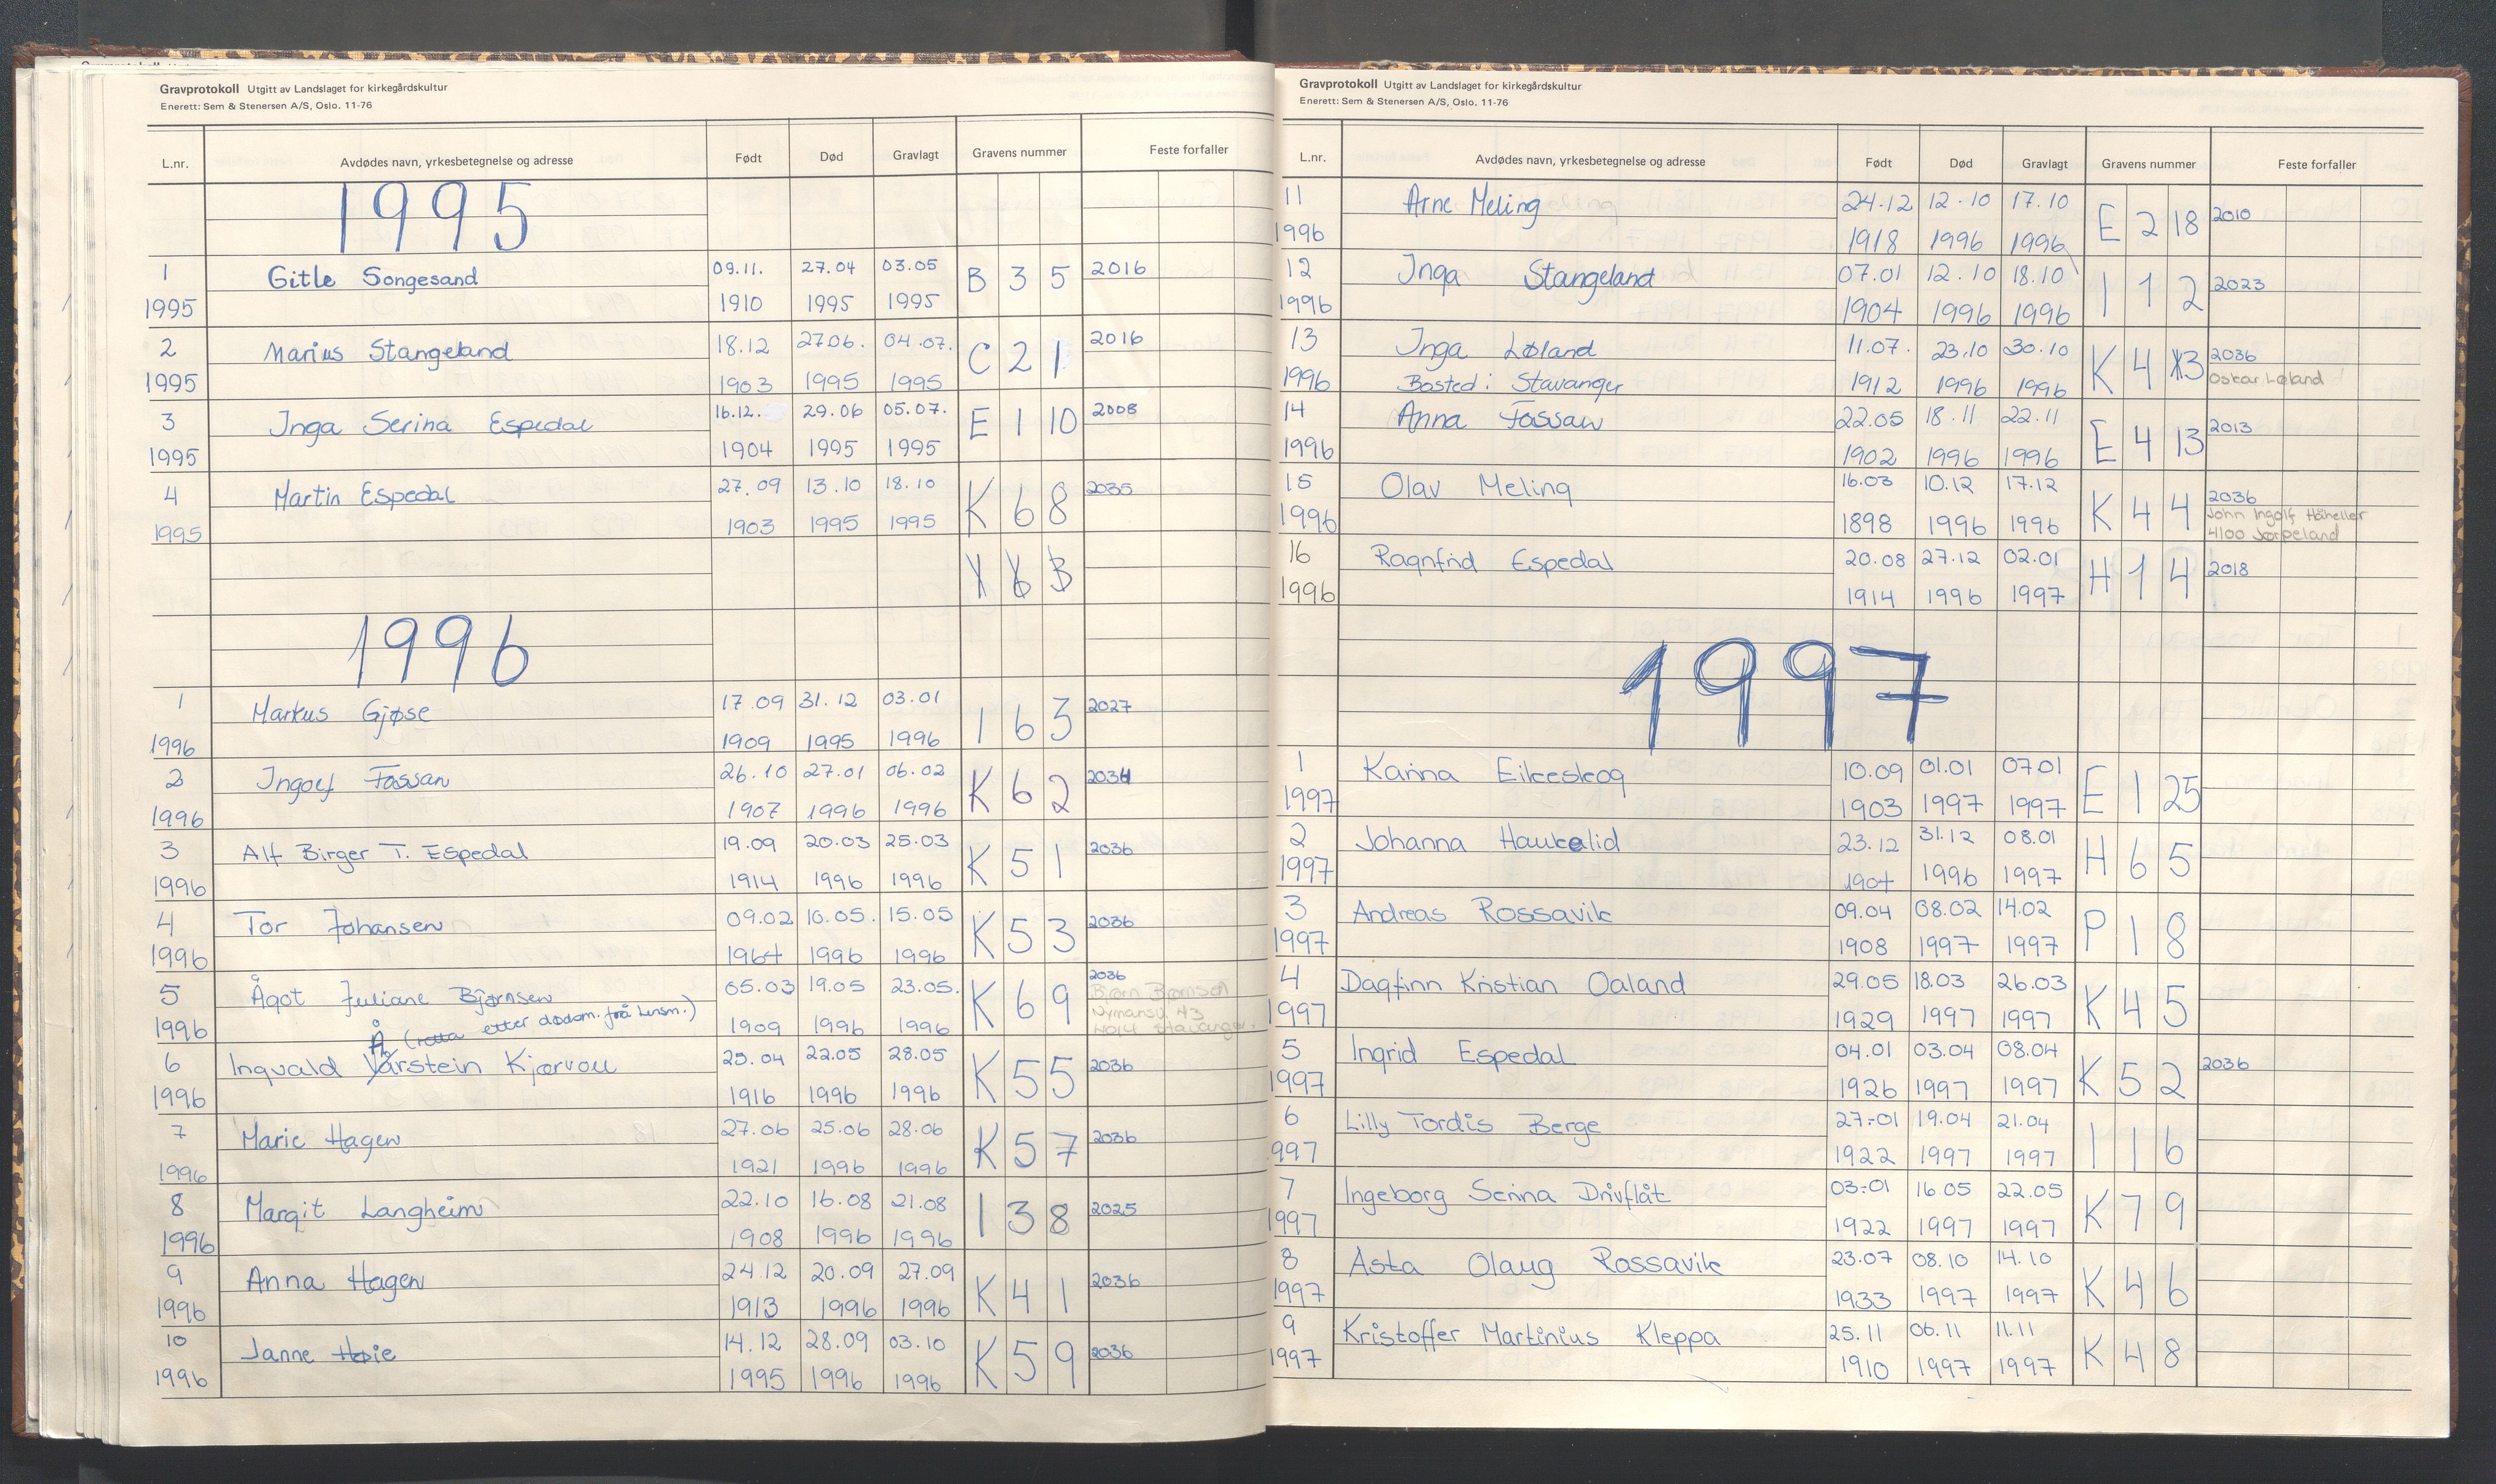 Gravprotokoll Utgitt av Landslaget for kirkegårdskultur
Enerett: Sem & Stenersen A/S, Oslo. 11-76
L.nr. Avdødes navn, yrkesbetegnelse og adresse Født Død Gravlagt Gravens nummer Feste forfaller
1995
1 Gitle Songesand 09.11. 27.04 03.05 B 3 5 2016
1995 1910 1995 1995
2 Marius Stangeland 18.12 27.06. 04.07. C 2 1 2016
1995 1903 1995 1995
3 Inga Serina Espedal 16.12. 29.06 05.07. E 1 10 2008
1995 1904 1995 1995
4 Martin Espedal 27.09 13.10 18.10 K 6 8 2035
1995 1903 1995 1995
1996
1 Markus Gjøse 17.09 31.12 03.01 I 6 3 2027
1996 1909 1995 1996
2 Ingolf Fossan 26.10 27.01 06.02 K 6 2 2034
1996 1907 1996 1996
3 Alf Birger T. Espedal 19.09 20.03 25.03 K 5 1 2036
1996 1914 1996 1996
4 Tor Johansen 09.02 10.05. 15.05 K 5 3 2036
1996 1964 1996 1996
5 Ågot Juliane Bjørnsen 05.03 19.05 23.05. K 6 9 2036
Bjørn Bjørnsen
Nymansv. 43
4014 Stavanger.
1996 1909 1996 1996
Å (retta etter dødsm. frå Lensm.)
6 Ingvald Årstein Kjørvoll 25.04 22.05 28.05 K 5 5 2036
1996 1916 1996 1996
7 Marie Hagen 27.06 25.06 28.06 K 5 7 2036
1996 1921 1996 1996
8 Margit Langheim 22.10 16.08 21.08 I 3 8 2025
1996 1908 1996 1996
9 Anna Hagen 24.12 20.09 27.09 K 4 1 2036
1996 1913 1996 1996
10 Janne Høie 14.12 28.09 03.10 K 5 9 2036
1996 1995 1996 1996
Gravprotokoll Utgitt av Landslaget for kirkegårdskultur
Enerett: Sem & Stenersen A/S, Oslo. 11-76
L.nr. Avdødes navn, yrkesbetegnelse og adresse Født Død Gravlagt Gravens nummer Feste forfaller
11 Arne Meling 24.12 12.10 17.10 E 2 18 2010
1996 1918 1996 1996
12 Inga Stangeland 07.01 12.10 18.10 I 1 2 2023
1996 1904 1996 1996
13 Inga Løland 11.07. 23.10 30.10 K 4 3 2036
1996 Bosted: Stavanger 1912 1996 1996 Oskar Løland
14 Anna Fossan 22.05 18.11 22.11 E 4 13 2013
1996 1902 1996 1996
15 Olav Meling 16.03 10.12 17.12 K 4 4 2036
1996 1898 1996 1996 John Ingolf Håheller
4100 Jørpeland
16 Ragnfrid Espedal 20.08 27.12 02.01 H 1 4 2018
1996 1914 1996 1997
1997
1 Karina Eikeskog 10.09 01.01 07.01 E 1 25
1997 1903 1997 1997
2 Johanna Haukalid 23.12 31.12 08.01 H 6 5
1997 1907 1996 1997
3 Andreas Rossavik 09.04 08.02 14.02 P 1 8
1997 1908 1997 1997
4 Dagfinn Kristian Oaland 29.05 18.03 26.03 K 4 5
1997 1929 1997 1997
5 Ingrid Espedal 04.01 03.04 08.04 K 5 2 2036
1997 1926 1997 1997
6 Lilly Tordis Berge 27.01 19.04 21.04 I 1 6
1997 1922 1997 1997
7 Ingeborg Serina Drivflåt 03.01 16.05 22.05 K 7 9
1997 1922 1997 1997
8 Asta Olaug Rossavik 23.07 08.10 14.10 K 4 6
1997 1933 1997 1997
9 Kristoffer Martinius Kleppa 25.11 06.11 11.11 K 4 8
1997 1910 1997 1997